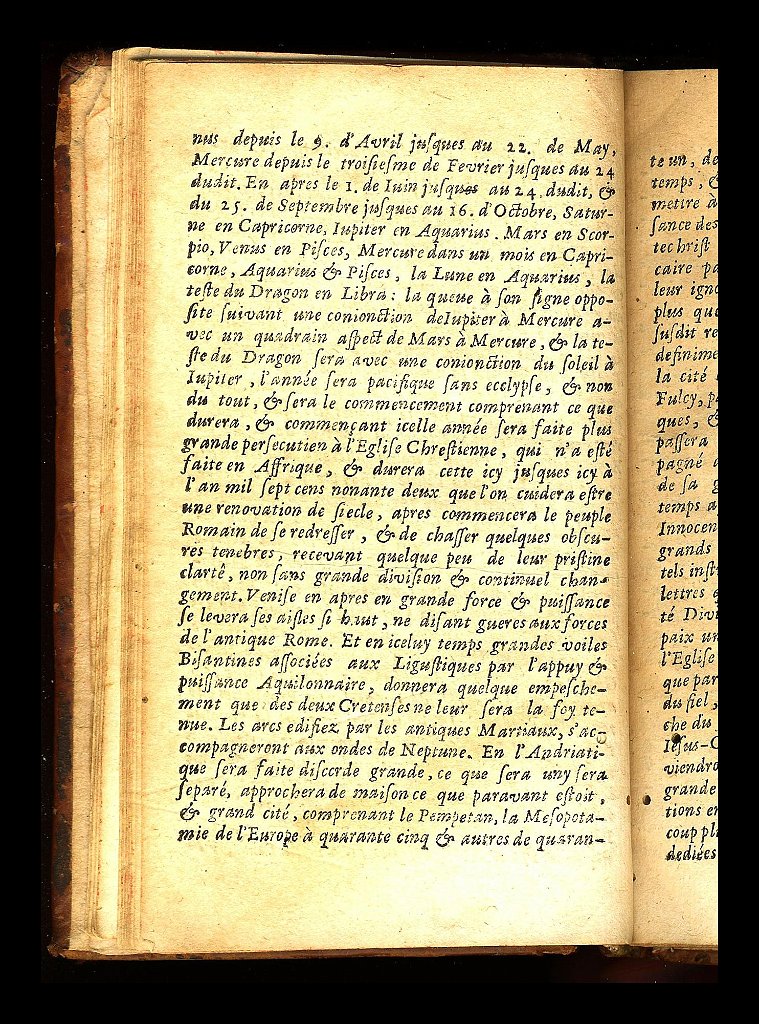 nus depuis le 9. d'Avril juſques au 22. de May,
Mercure depuis le troiſieſme de Fevrier juſques au 24
dudit. En apres le 1. de Iuin juſques au 24 dudit, &
du 25. de Septembre juſques au 16. d'Octobre, Satur-
ne en Capricorne, Iupiter en Aquarius. Mars en Scor-
pio, Venus en Piſces, Mercure dans un mois en Capri-
corne, Aquarius & Piſces, la Lune en Aquarius, la
teſte du Dragon en Libra: la queue à ſon ſigne oppo-
ſite ſuivant une conionction de Iupiter à Mercure a-
vec un quadrain aſpect de Mars à Mercure, & la te-
ſte du Dragon ſera avec une conionction du ſoleil à
Iupiter, l'année ſera pacifique ſans ecclypſe, & non
du tout, & ſera le commencement comprenant ce que
durera, & commençant icelle année ſera faite plus
grande perſecutien à l'Egliſe Chreſtienne, qui n'a eſté
faite en Affrique, & durera cette icy juſques icy à
l'an mil ſept cens nonante deux que l'on cuidera eſtre
une renovation de ſiecle, apres commencera le peuple
Romain de ſe redreſſer, & de chaſſer quelques obſcu-
res tenebres, recevant quelque peu de leur priſtine
clartê, non ſans grande diviſion & continuel chan-
gement. Veniſe en apres en grande force & puiſſance
ſe levera ſes aiſles ſi haut, ne diſant gueres aux forces
de l'antique Rome. Et en iceluy temps grandes voiles
Biſantines aſſociées aux Liguſtiques par l'appuy &
puiſſance Aquilonnaire, donnera quelque empeſche-
ment que des deux Cretenſes ne leur ſera la foy te-
nue. Les arcs edifiez par les antiques Martiaux, s'ac-
compagneront aux ondes de Neptune. En l'Andriati-
que ſera faite diſcorde grande, ce que ſera uny ſera
ſeparé, approchera de maiſon ce que paravant eſtoit,
& grand cité, comprenant le Pempetan, la Meſopota-
mie de l'Europe à quarante cinq & autres de quaran-
te un, de
temps, &
mettre à
ſance des
techriſt
caire
leur
plus que
ſuſdit
la cité
Fulcy,
ques, &
paſſera
pagné
de ſa
temps
grands
tels
lettres
té
paix
l'Egliſe
que par
du fiel,
che du
viendro
grande
tions
coup
dediées